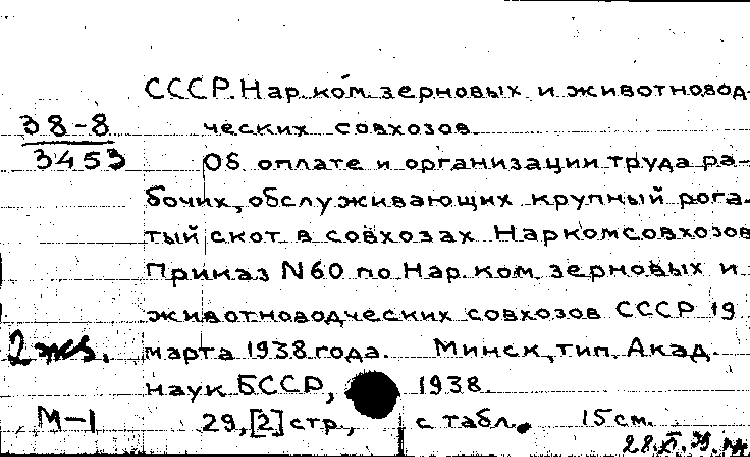 СССР. Нар. ком. зерновых и животновод-
38-8 ческих совхозов.
3453 Об оплате и организации труда ра-
бочих, обслуживающих крупный рога-
тый скот в совхозах Наркомсовхозов
Приказ N60 по Нар. ком. зерновых и
животноводческих совхозов СССР 19
2 экз. марта 1938 года. Минск, тип. Акад.
наук БССР, 1938.
М-1 29, [2] стр., с табл. 15 см.
28.XI.39.